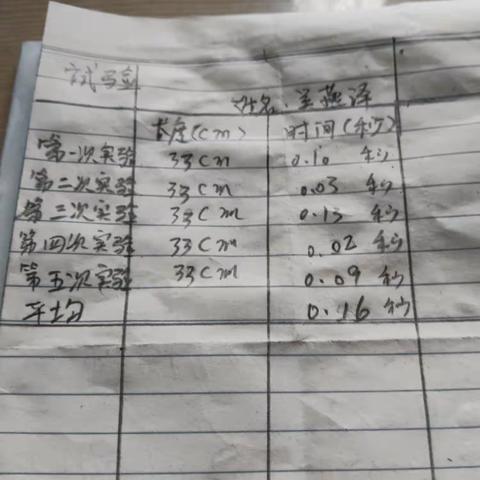 试验
姓名:吴燕泽
长度(cm) 时间(秒)
第一次实验 33cm 0.10 秒
第二次实验 33cm 0.03 秒
第三次实验 33cm 0.13 秒
第四次实验 33cm 0.02 秒
第五次实验 33cm 0.09 秒
平均 0.16 秒